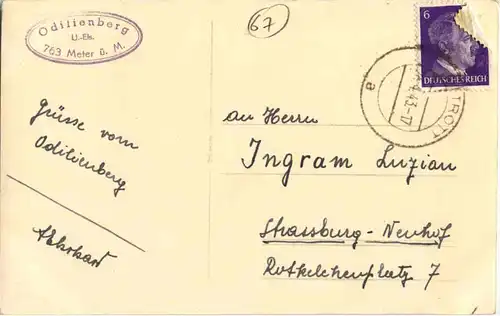 Odilienberg
U.-Els.
763 Meter ü. M.
67
6
DEUTSCHES REICH
43-17
a
TROTT
Grüsse vom
Odilienberg
an Herrn
Ingram Luzian
Strassburg-Neuhof
Rotkelchenplatz 7